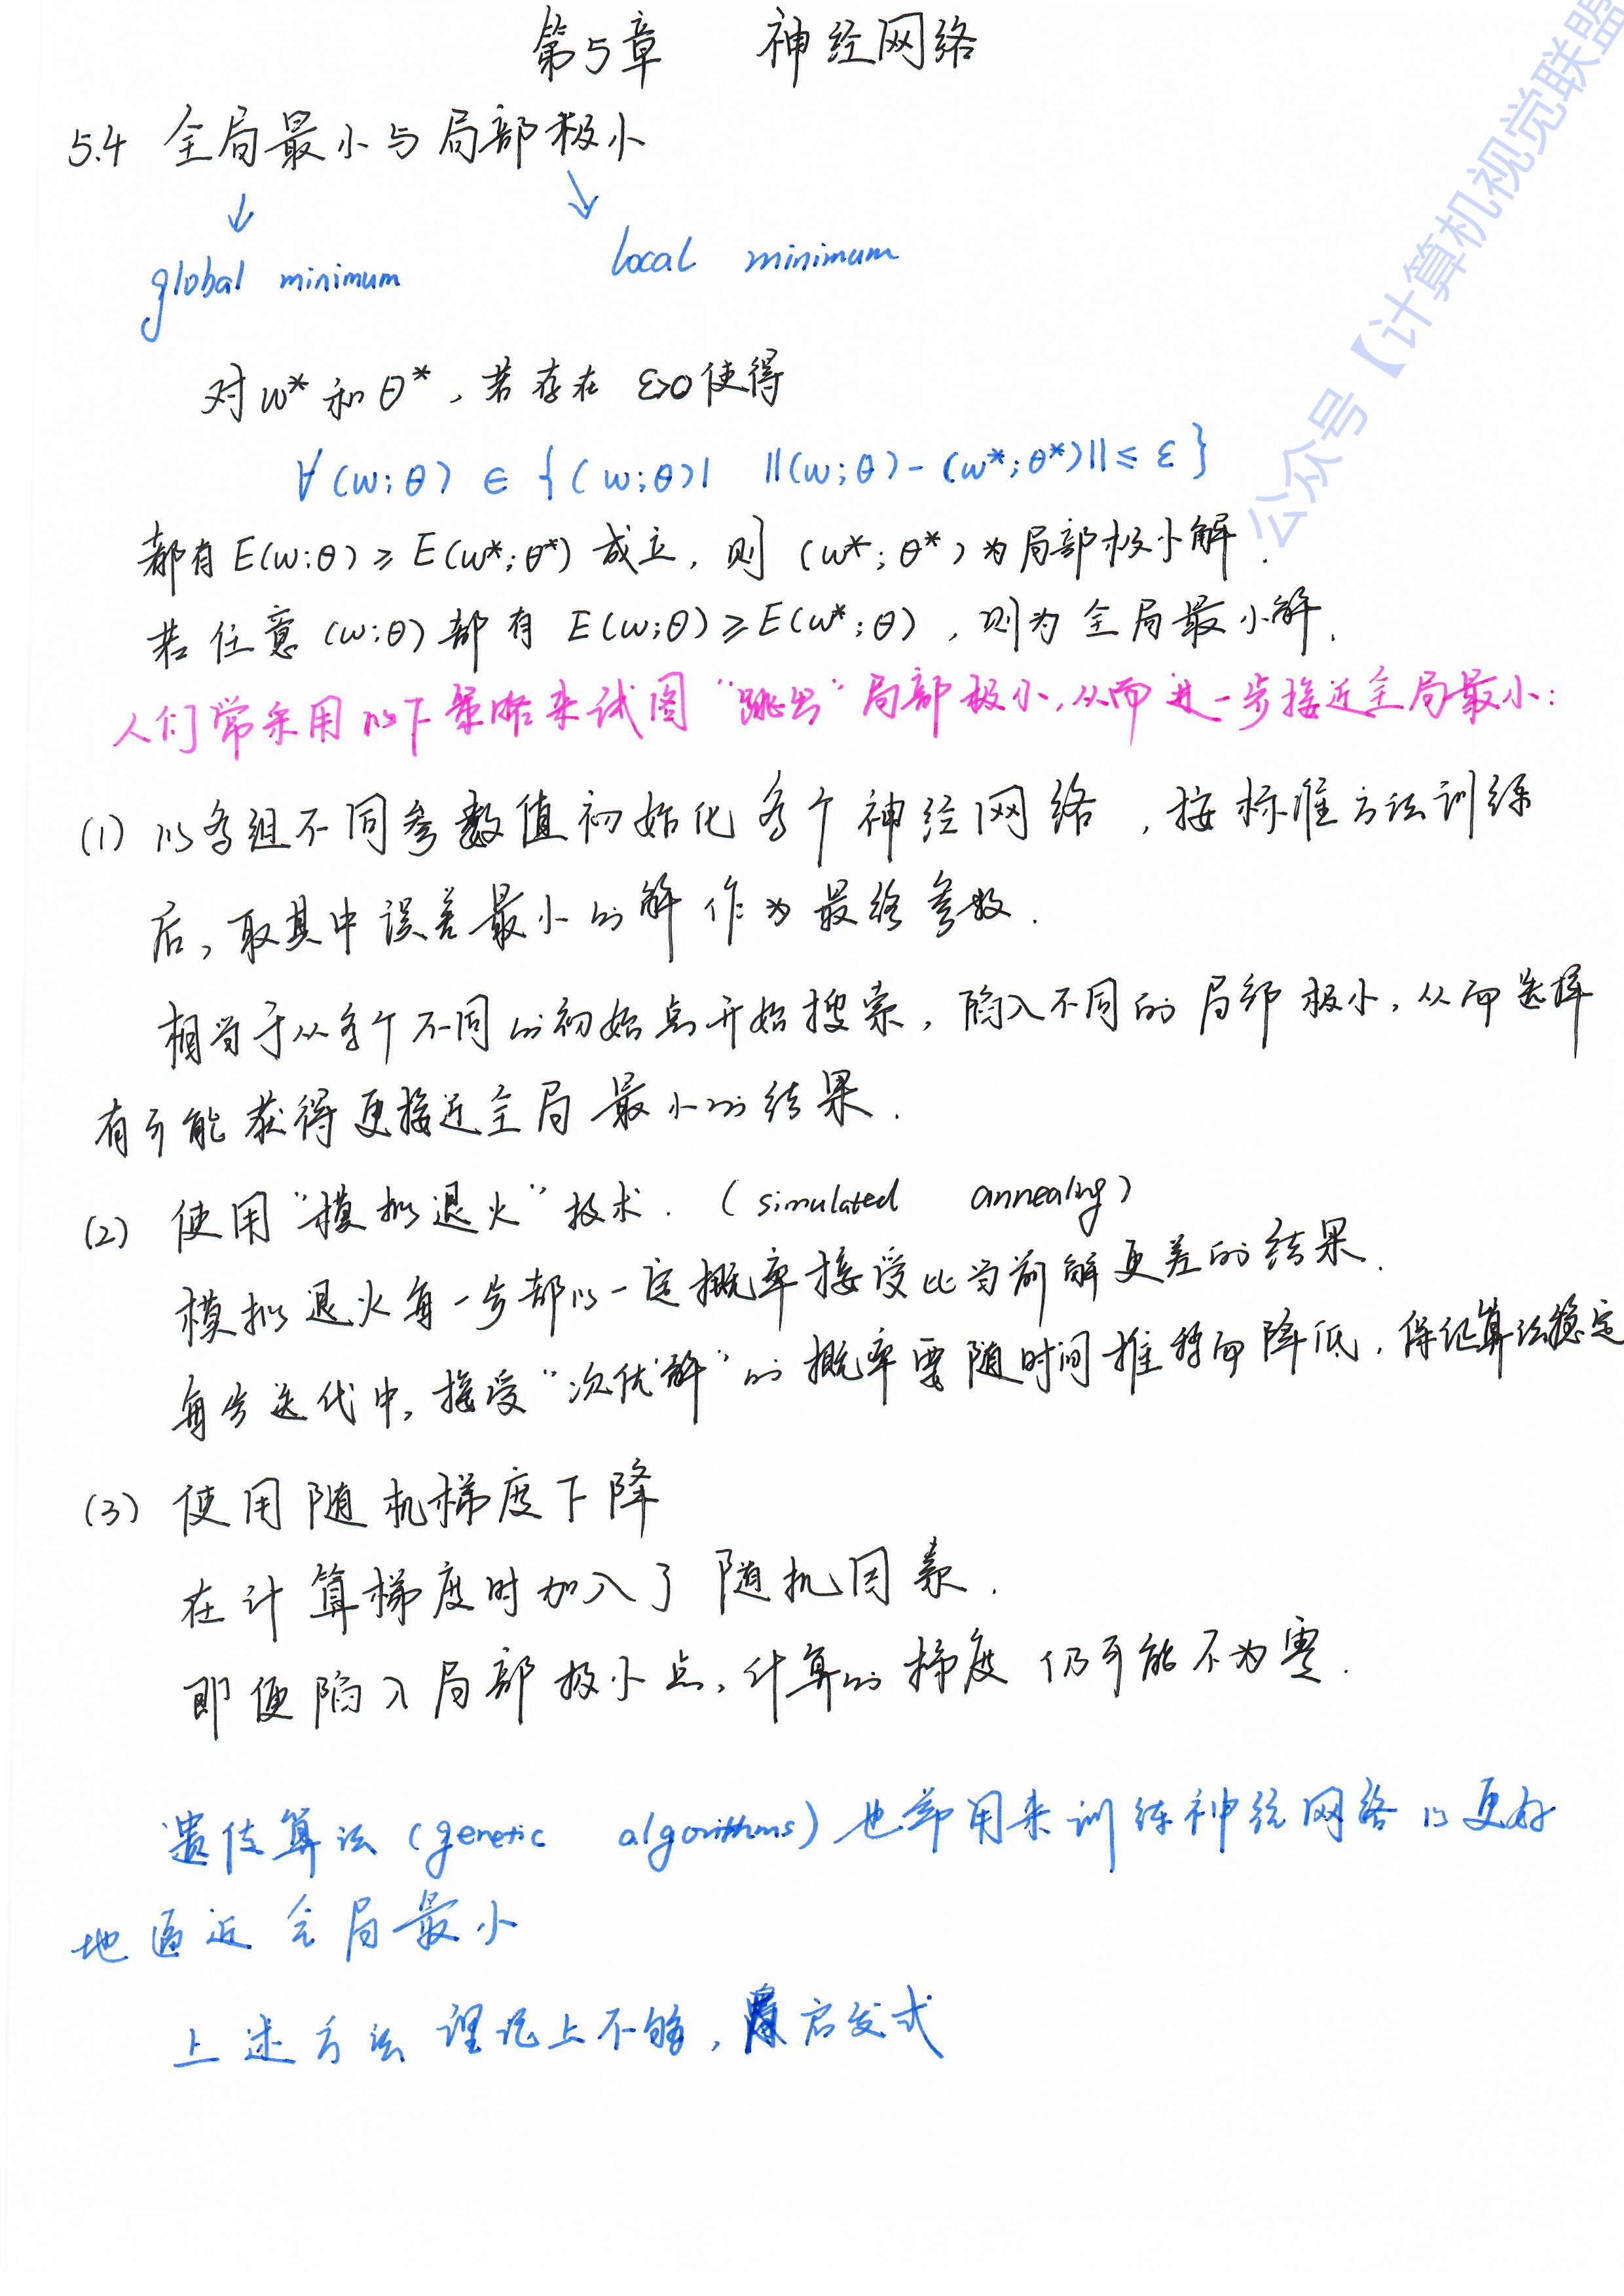 第5章 神经网络
5.4 全局最小与局部极小
global minimum local minimum
对w*和θ*,若存在 ε>0使得
∀(w;θ) ∈ {(w;θ)| ||(w;θ)-(w*;θ*)||≤ε}
都有E(w;θ)≥E(w*;θ*)成立,则(w*;θ*)为局部极小解.
若任意(w;θ)都有 E(w;θ)≥E(w*;θ),则为全局最小解.
人们常采用以下策略来试图"跳出"局部极小,从而进一步接近全局最小:
(1) 以多组不同参数值初始化多个神经网络,按标准方法训练
后,取其中误差最小的解作为最终参数.
相当于从多个不同的初始点开始搜索,陷入不同的局部极小,从而选择
有可能获得更接近全局最小的结果.
(2) 使用"模拟退火"技术.(simulated annealing)
模拟退火每一步都以一定概率接受比当前解更差的结果.
每步迭代中,接受"次优解"的概率要随时间推移而降低,保证算法稳定
(3) 使用随机梯度下降
在计算梯度时加入了随机因素.
即便陷入局部极小点,计算的梯度仍可能不为零.
遗传算法(genetic algorithms)也常用来训练神经网络以更好
地逼近全局最小
上述方法理论上不够,启发式
公众号【计算机视觉联盟